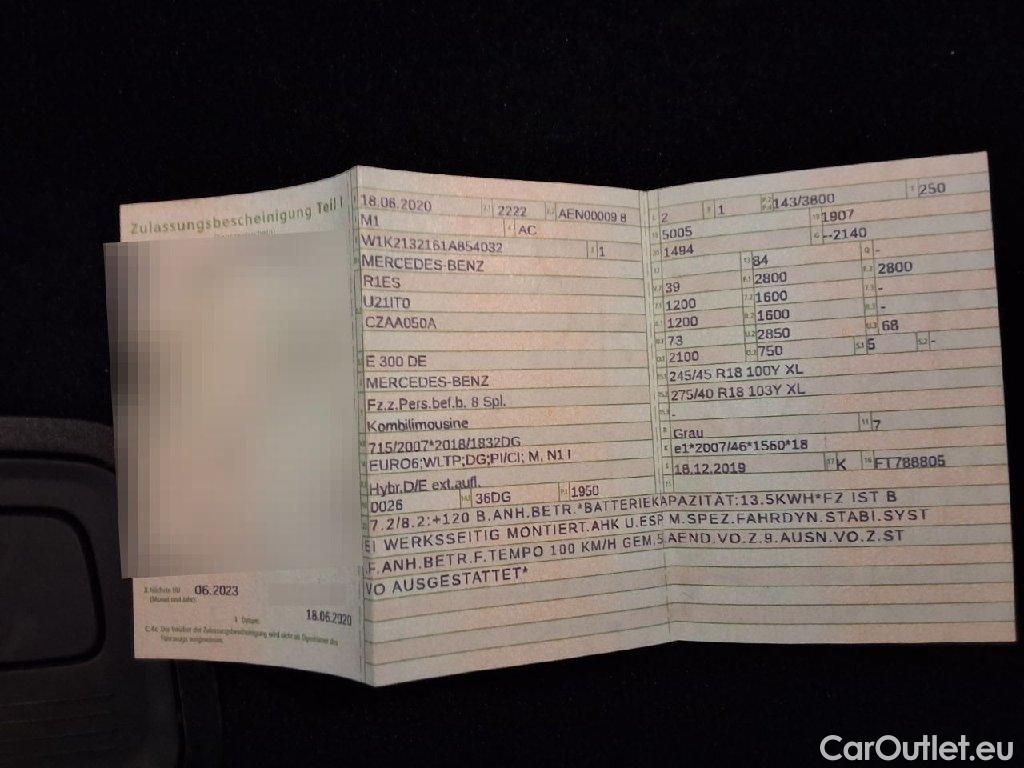 Zulassungsbescheinigung Teil I
18.06.2020 2222 AEN00009 8
M1 AC
W1K2132161A854032 1
MERCEDES-BENZ
R1ES
U21IT0
CZAA050A
E 300 DE
MERCEDES-BENZ
Fz.z.Pers.bef.b. 8 Spl.
Kombilimousine
715/2007*2018/1832DG
EURO6;WLTP;DG;PI/CI; M, N1 I
Hybr.D/E ext.aufl.
0026 36DG 1950
2 1 143/3800 250
5005 1907
1494 --2140
84 -
39 2800 2800
1200 1600 -
1200 1600 -
73 2850 68
2100 750 5 -
245/45 R18 100Y XL
275/40 R18 103Y XL
-
Grau 7
e1*2007/46*1560*18
18.12.2019 K FT788805
7.2/8.2:+120 B.ANH.BETR.*BATTERIEKAPAZITÄT:13.5KWH*FZ IST B
EI WERKSSEITIG MONTIERT.AHK U.ESP M.SPEZ.FAHRDYN.STABI.SYST
F.ANH.BETR.F.TEMPO 100 KM/H GEM.5.AEND.VO.Z.9.AUSN.VO.Z.ST
VO AUSGESTATTET*
Nächste HU 06.2023
(Monat und Jahr)
Datum 18.06.2020
C.4c Der Inhaber der Zulassungsbescheinigung wird nicht als Eigentümer des
Fahrzeugs ausgewiesen.
CarOutlet.eu